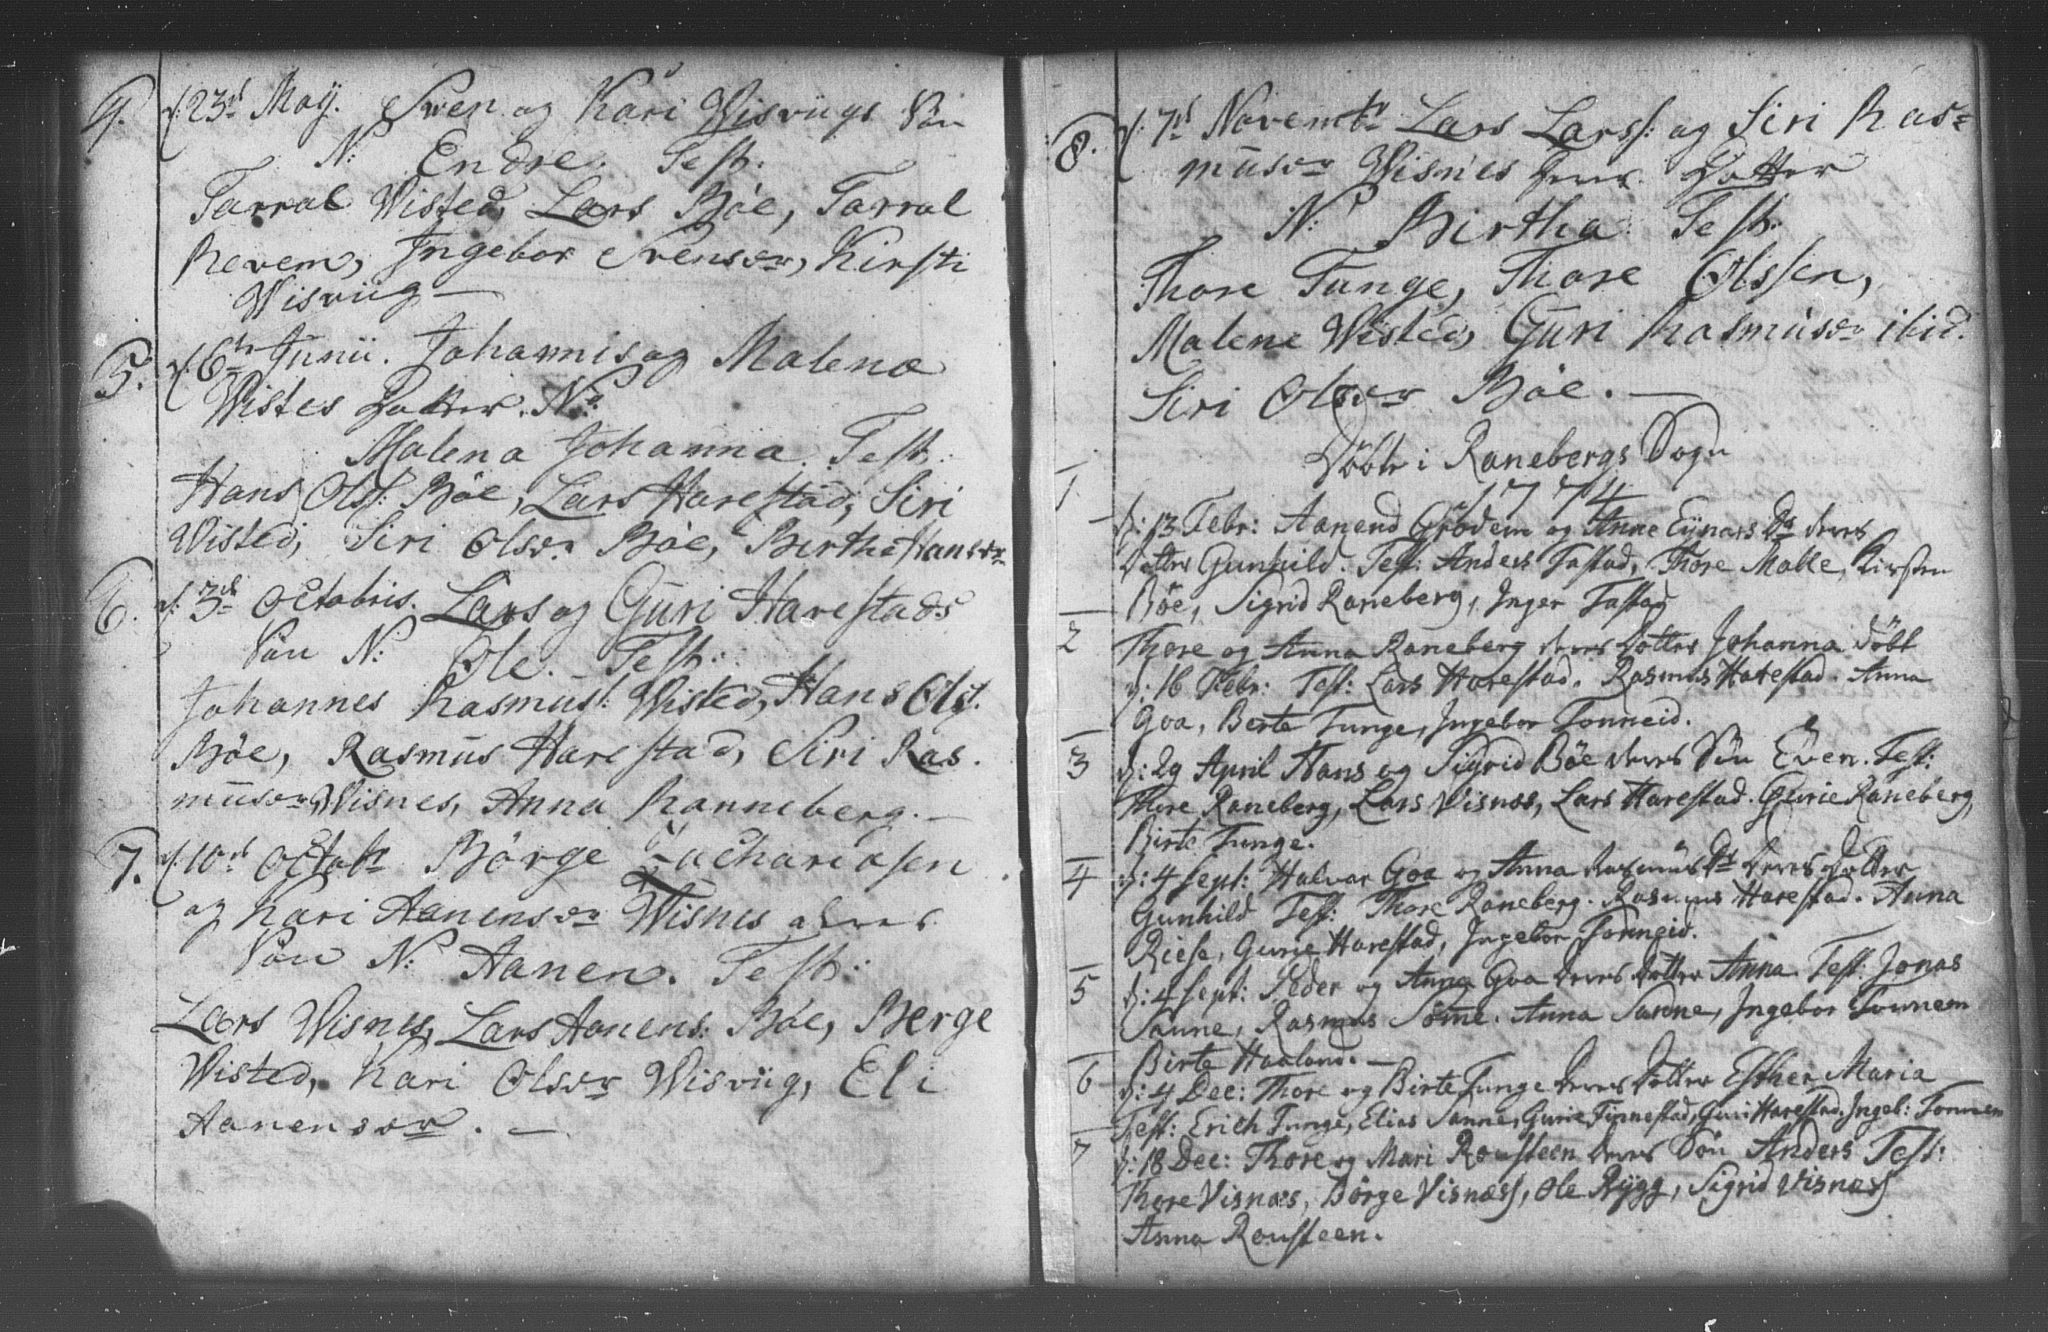 4. d: 23de Maij. Sven og Kari Wisviigs Søn
N: Endre. Test:
Tarral Wisted, Lars Bøe, Tarral
Revem, Ingebor Svensdr, Kirsti
Wisviig —
5. d: 6te Junii. Johannis og Malena
Wistes Datter. N:
Malena Johanna. Test:
Hans Ols: Bøe, Lars Harestad, Siri
Wisted, Siri Olsdr Bøe, Birthe Hansdr
6. d: 3de Octobris. Lars og Guri Harestads
Søn N: Ole. Test:
Johannes Rasmus: Wisted, Hans Ols:
Bøe, Rasmus Harestad, Siri Ras-
musdr Wisnes, Anna Ranneberg. —
7. d: 10de Octobr Børge Zachariasen
og Kari Aanensdr Wisnes deres
Søn N: Aanen. Test:
Lars Wisnes, Lars Aanens: Bøe, Berge
Wisted, Kari Olsdr Wisviig, Eli
Aanensdr. —
8. d: 7de Novembr Lars Lars: og Siri Ras=
musdr Wisnes deres Datter
N: Birtha. Test:
Thore Tunge, Thore Olssen,
Malene Wisted, Guri Rasmusdr ibid.
Siri Olsdr Bøe. —
Døbte i Ranebergs Sogn
1774
1 d: 13 Febr: Aanend Grødem og Anne Eijnars Dr deres
Dotter Gunhild. Test: Anders Tastad, Thore Malle, Kirsten
Bøe, Sigrid Raneberg, Inger Tastad
2 Thore og Anna Raneberg deres Dotter Johanna døbt
d: 16 Febr: Test: Lars Harestad. Rasmus Harestad. Anna
Goa, Berte Tunge, Ingebor Tonneid.
3 d: 29 April Hans og Sigrid Bøe deres Søn Even. Test:
Thore Raneberg, Lars Visnæs, Lars Harestad. Gurie Raneberg,
Birte Tunge.
4 d: 4 Sept: Halvar Goa og Anna Rasmus Dr deres Dotter
Gunhild Test: Thore Raneberg. Rasmus Harestad. Anna
Riese, Gurie Harestad, Ingebor Tonneid.
5 d: 4 Sept: Peder og Anna Goa deres Dotter Anna. Test: Jonas
Sanne, Rasmus Sømme. Anna Sandne, Ingebor Tonnem
Birte Haaland. —
6 d: 4 Dec: Thore og Birte Tunge deres Dotter Esther Maria
Test: Erich Tunge, Elias Sanne, Gurie Finnestad, Guri Harestad. Ingeb: Tonnem
7 d: 18 Dec: Thore og Mari Rousteen deres Søn Anders Test:
Thore Visnæs, Børge Visnæss, Ole Rygg, Sigrid Visnæss
Anna Rousteen.